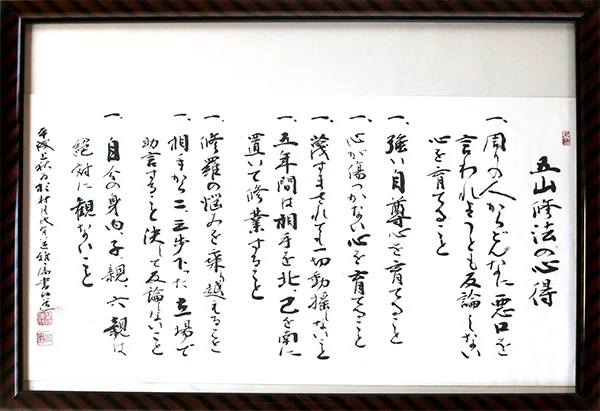 五山修法の心得
一、周りの人からどんなに悪口を
言われようとも反論しない
心を育てること
一、強い自尊心を育てること
一、心が傷つかない心を育てること
一、蔑すまされても一切動揺しないこと
一、五年間は相手を北、己を南に
置いて修業すること
一、修羅の悩みを乗り越えること
一、相手から二、三歩下った立場で
助言すること決して反論しないこと
一、自分の身内、子、親、六親は
絶対に観ないこと